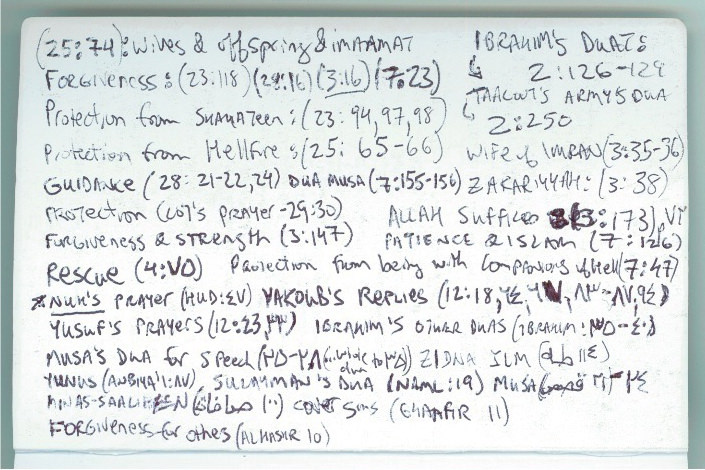 (25:74): Wives & offspring & imaamat
Forgiveness: (23:118) (28:16) (3:16) (7:23)
Protection from Shayateen: (23:94,97,98)
Protection from Hellfire: (25: 65-66)
Guidance (28: 21-22,24) Dua Musa (7:155-156)
Protection (Lot's prayer - 29:30)
Forgiveness & Strength (3:147)
Rescue (4:٧٥) Protection from being with Companions of Hell (7:47)
Ibrahim's Duats:
2:126-129
Taaloot's Army's Dua
2:250
Wife of Imran (3:35-36)
Zakariyyah: (3:38)
Allah Suffices (3:173), ٧٢
Patience & Islam (7:126)
* Nuh's prayer (Hud:٤٧) Yakoub's Replies (12:18,
Yusuf's prayers (12:٤٣,٣٣) Ibrahim's other duas (Ibrahim: ٣٥-٤٠)
Musa's Dua for Speech (٢٥-٢٨ Zidna Ilm (طه ١١٤)
Yunus (Anbiya'I:٨٧), Sulayman's Dua (Naml:19) Musa (قصص
صافات ١٠٠) cover sins (Ghaafir 11)
Forgiveness for others (Al Hashr 10)